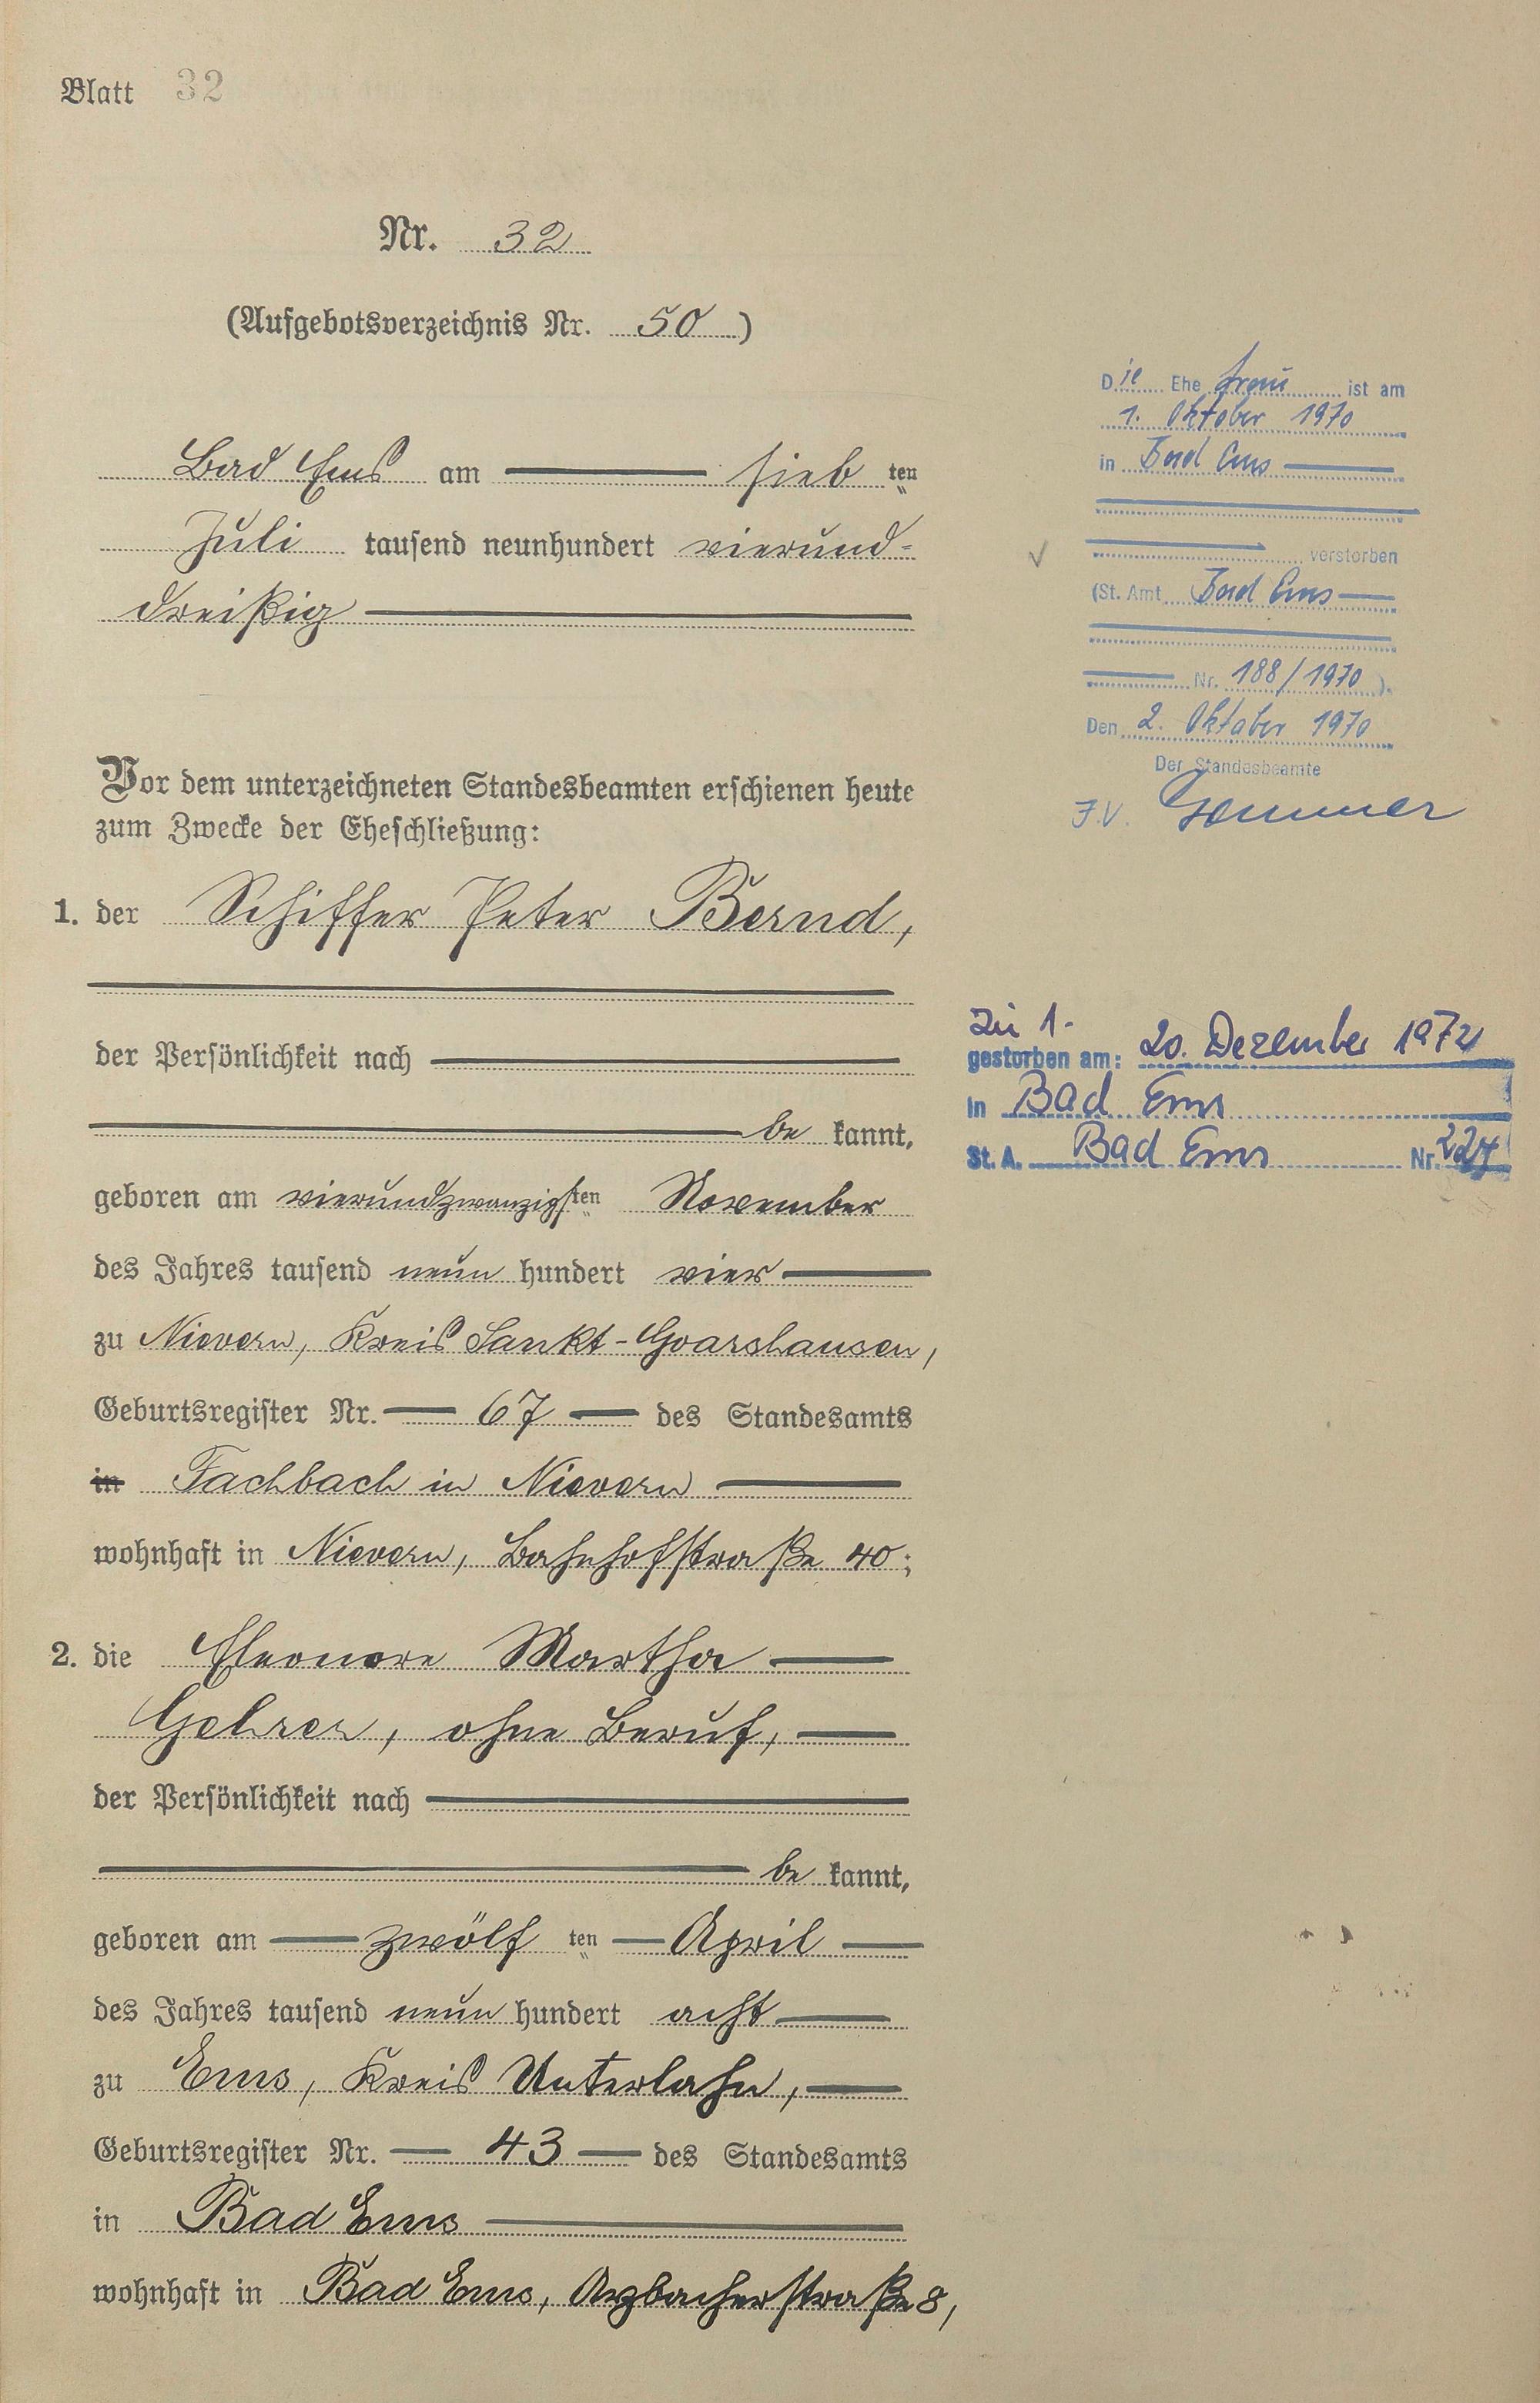 Blatt 32
Nr. 32
(Aufgebotsverzeichnis Nr. 50)
Bad Ems am sieb ten
Juli tausend neunhundert vierund-
dreißig
Vor dem unterzeichneten Standesbeamten erschienen heute
zum Zwecke der Eheschließung:
1. der Schiffer Peter Bernd,
der Persönlichkeit nach
be kannt,
geboren am vierundzwanzigsten November
des Jahres tausend neun hundert vier
zu Nievern, Kreis Sankt-Goarshausen,
Geburtsregister Nr. 67 des Standesamts
in Fachbach in Nievern
wohnhaft in Nievern, Bahnhofstraße 40;
2. die Eleonore Martha
Gehrer, ohne Beruf,
der Persönlichkeit nach
be kannt,
geboren am zwölf ten April
des Jahres tausend neun hundert acht
zu Ems, Kreis Unterlahn,
Geburtsregister Nr. 43 des Standesamts
in Bad Ems
wohnhaft in Bad Ems, Arzbacherstraße 8,
Die Ehe frau ist am
1. Oktober 1970
in Bad Ems
verstorben
(St. Amt Bad Ems
Nr. 188/1970).
Den 2. Oktober 1970
Der Standesbeamte
I.V.
Zu 1.
gestorben am: 20. Dezember 1972
in Bad Ems
St. A. Bad Ems Nr. 224